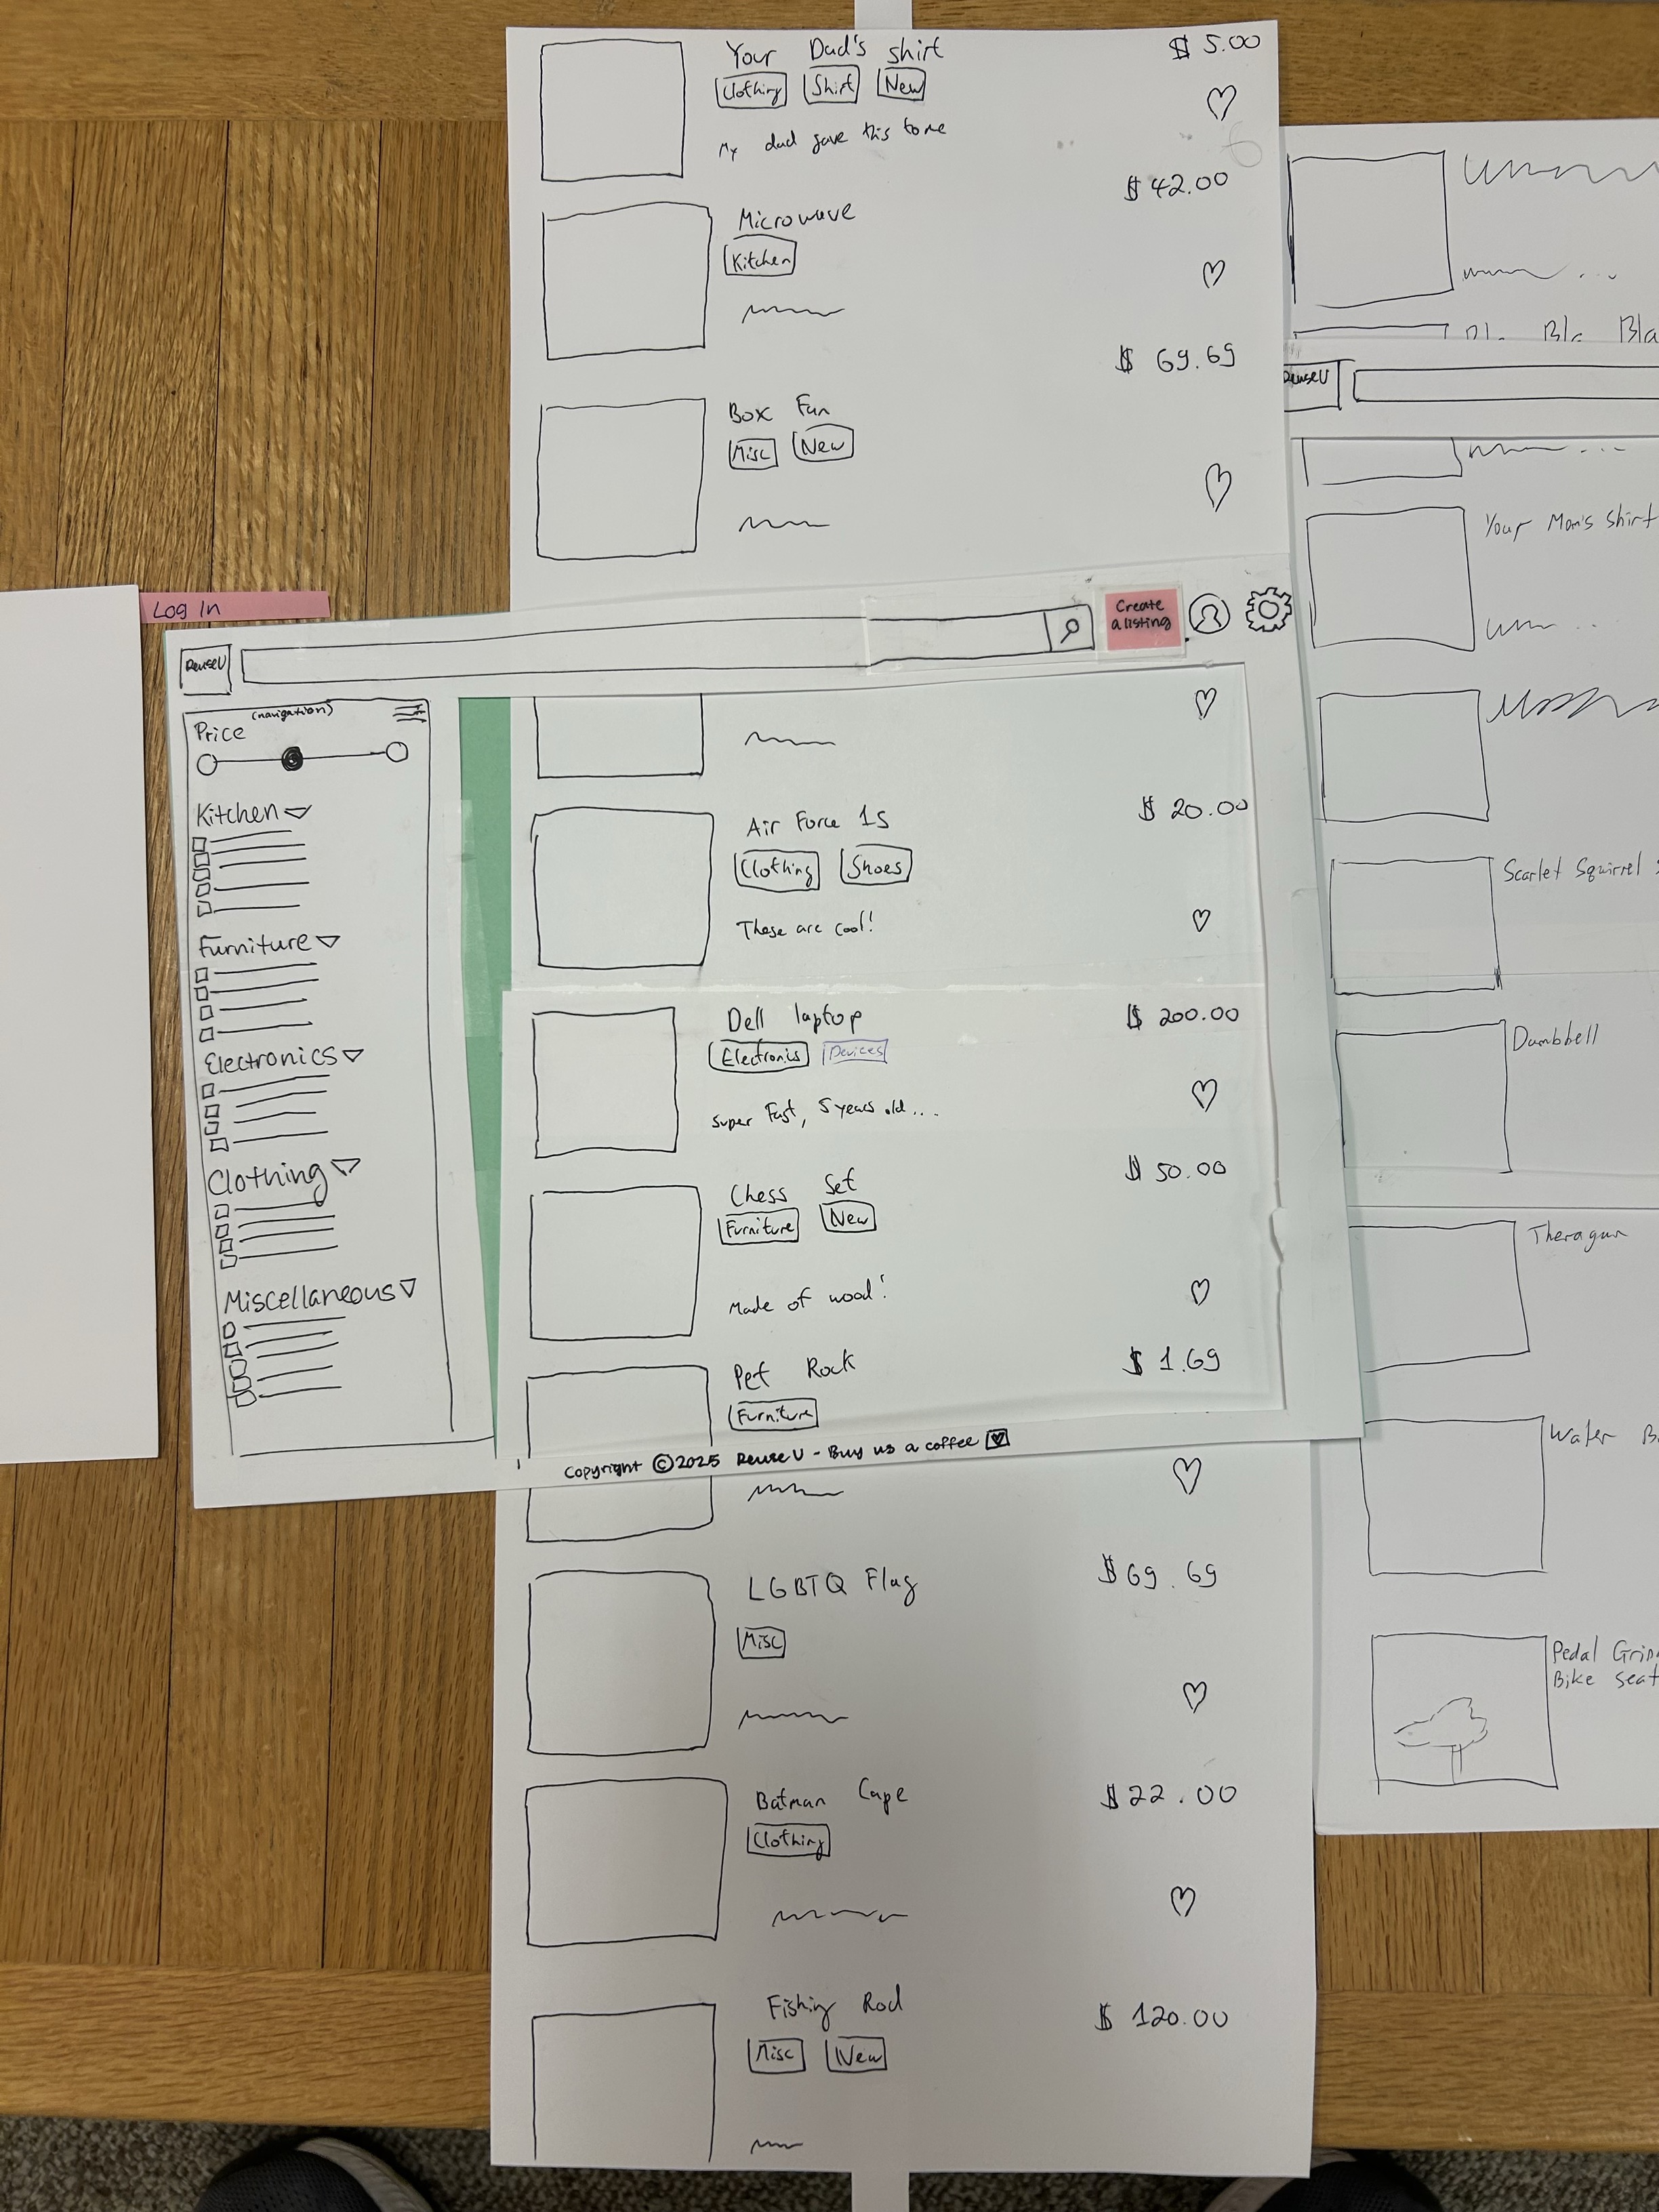 Your Dad's shirt
$ 5.00
Clothing Shirt New
My dad gave this to me
$ 42.00
Microwave
Kitchen
$ 69.69
Box Fan
Misc New
Log In
ReuseU
Create
a listing
(navigation)
Price
Kitchen
Furniture
Electronics
Clothing
Miscellaneous
Air Force 1s
$ 20.00
Clothing Shoes
These are cool!
Dell laptop
$ 200.00
Electronics Devices
Super Fast, 5 years old...
Chess Set
$ 50.00
Furniture New
Made of wood!
Pet Rock
$ 1.69
Furniture
Copyright ©2025 ReuseU - Buy us a coffee
LGBTQ Flag
$69.69
Misc
Batman Cape
$22.00
Clothing
Fishing Rod
$ 120.00
Misc New
Bla Bla
ReuseU
Your Mom's Shirt
Scarlet Squirrel
Dumbbell
Theragun
Water
Pedal
Bike seat